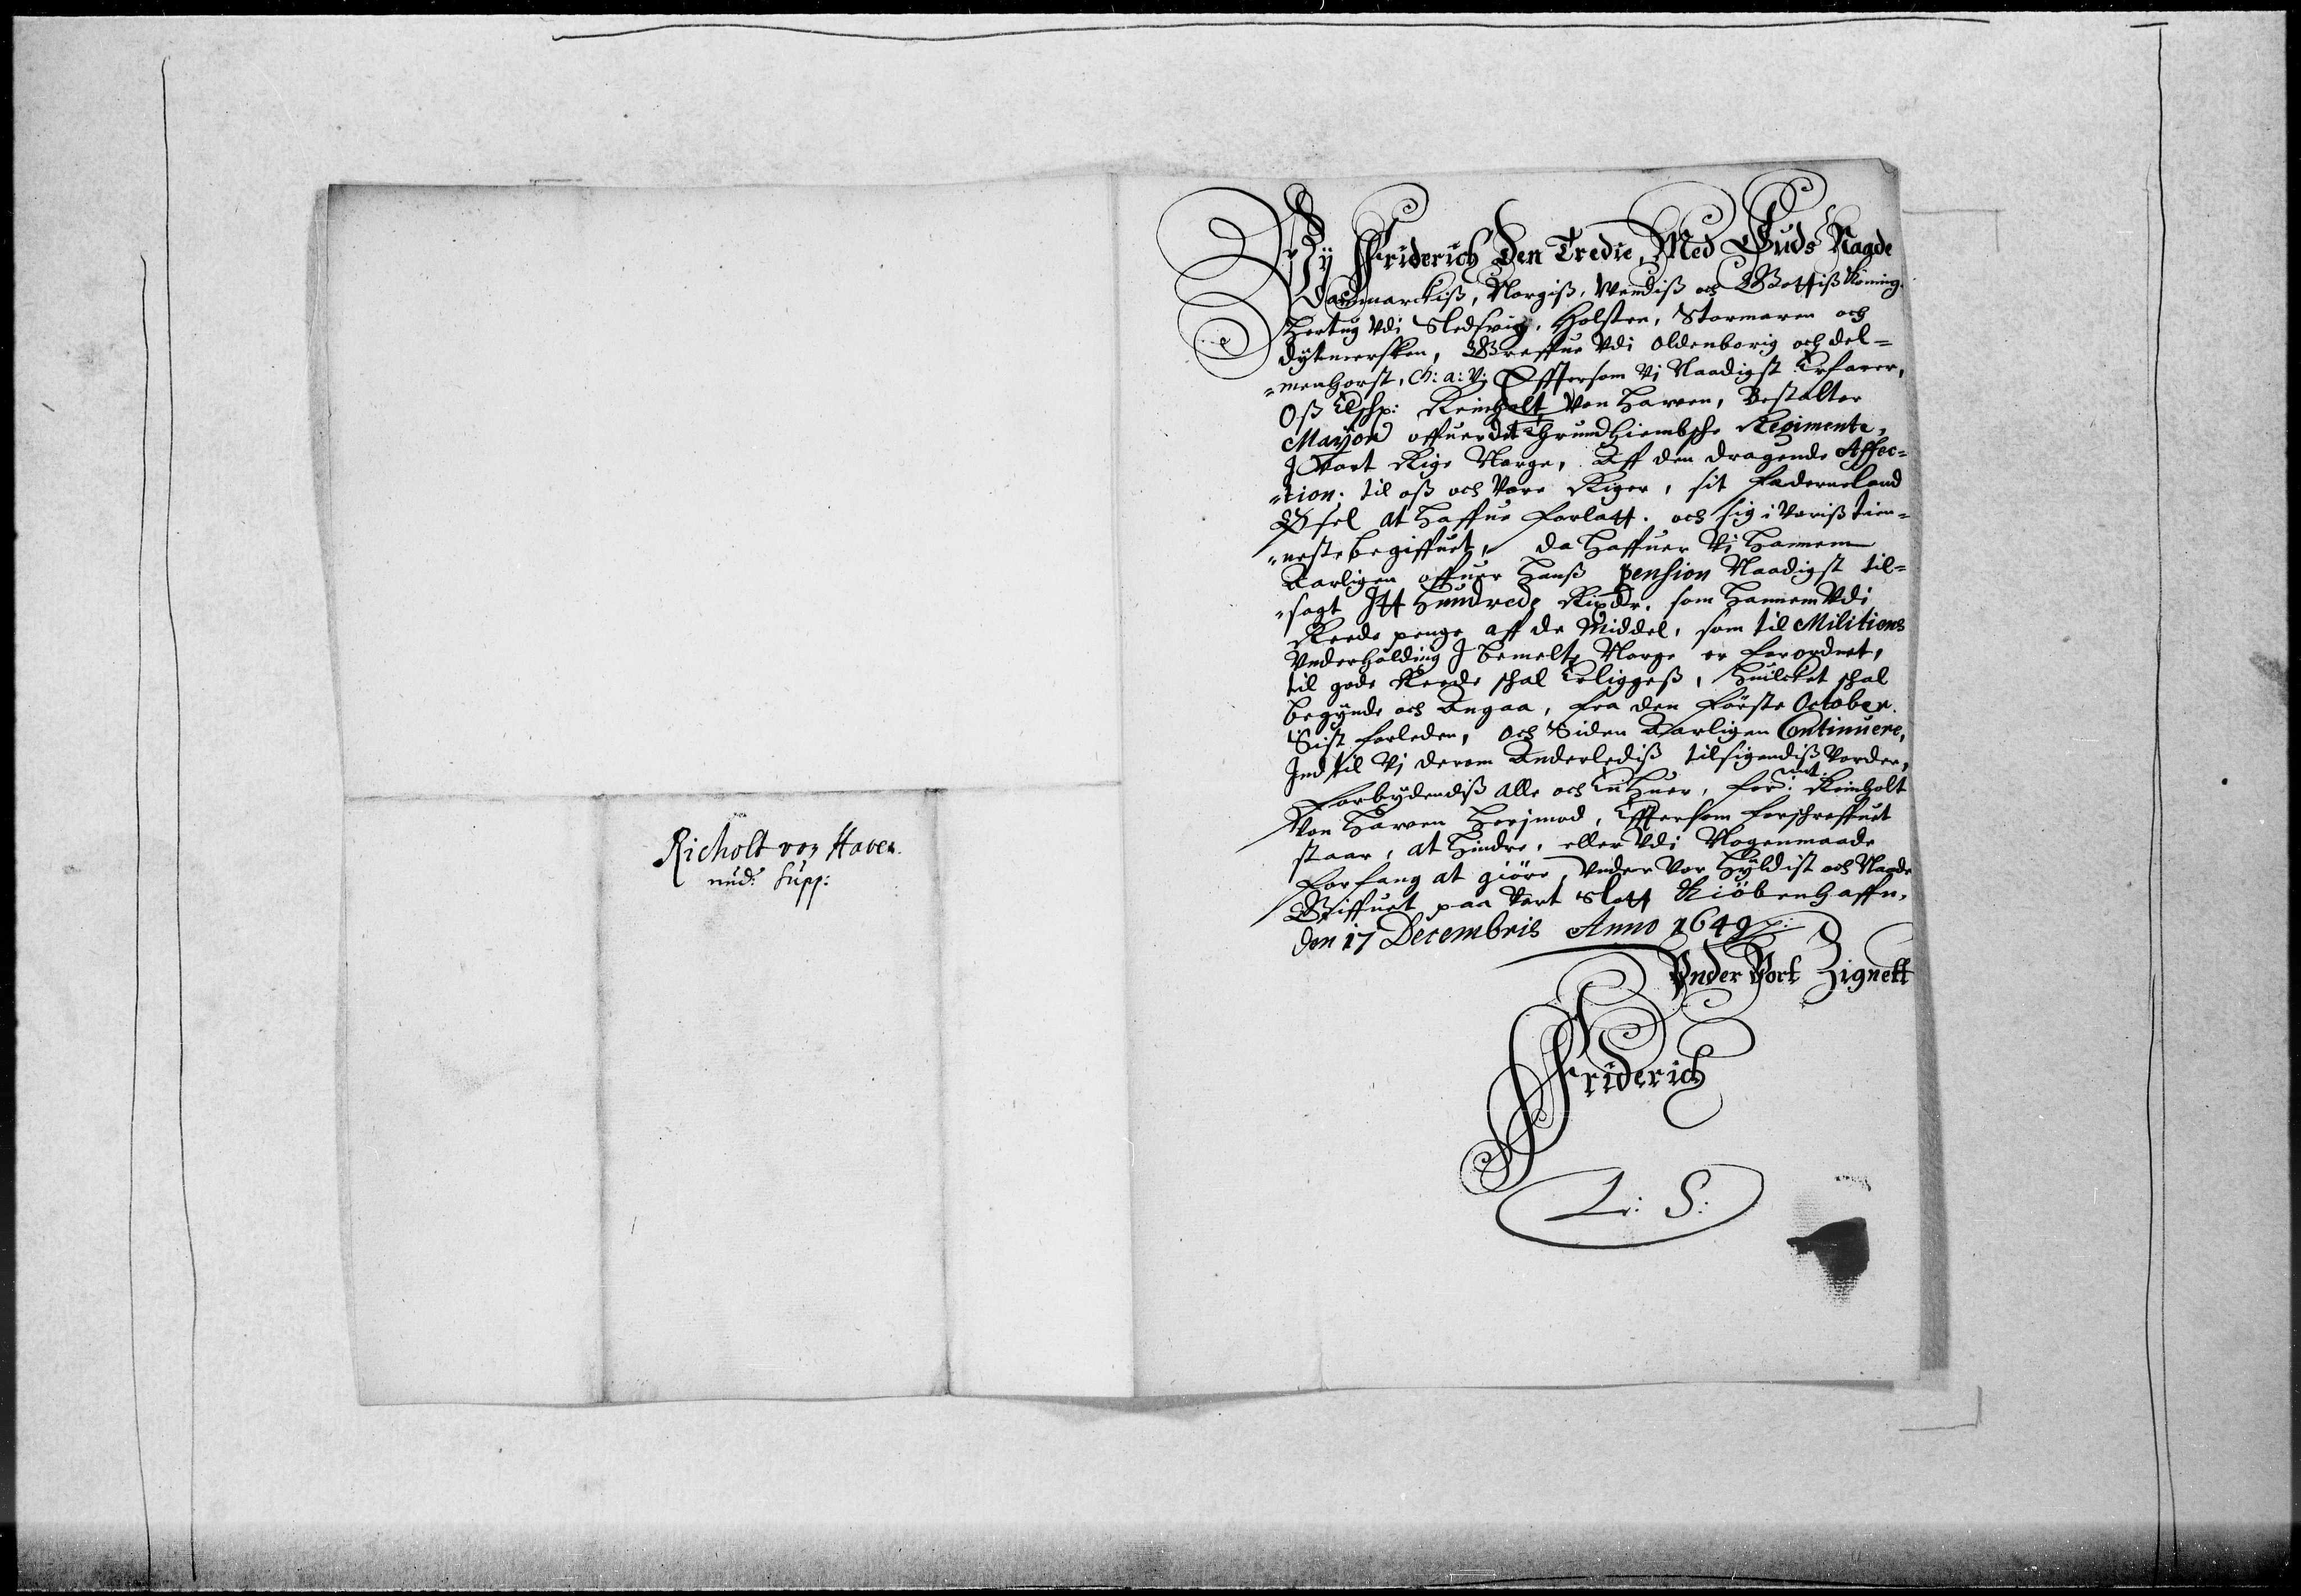 Richolt von Haven.
nud: supp:
Wy Friderich Den Tredie, Med Guds Naade
Danmarckis, Norgiß, Wendiß och Gottiß Konning,
Hertug Vdi Sledsvig, Holsten, Stormaren och
Dytmersken, Greffue Vdi Oldenborig och Del=
=menhorst, G: a: V: Effttersom Vj Naadigst Erfarer,
Oß Elschel: Reinholt Von Haven, Bestalter
Mayor offuer dit Trundhiembsche Regimente,
J Vort Rige Norge, Aff den dragende Affec=
=tion til oß och Vore Riger, sit Faderneland
Øsel at haffue forlatt. och sig i Voriß tien=
=neste begiffuet, da haffuer Vj hannem
Aarligen offuer hanß pension Naadigst til=
=sagt Jtt Hundrede Rixdlr. som hannem Vdi
Reede penge aff de Middel, som til Militiens
Vnderholding J bemelte Norge er forordnet,
til gode Reede schal Erliggeß, huilcket schal
begynde och Angaa, fra den Förste October
Sist forleden, och Siden Aarligen Continuere,
Jnd til Vj derom Anderlediß tilsigendiß Vorder,
Forbydendiß alle och En huer, for: nt. Reinholt
Von Haven herjmod, Effttersom forschreffuet
staar, at hindre, eller Vdi Nogenmaade
forfang at giöre, Vnder Vor Hyldist och Naade
Giffuet paa Vort Slott Kiöbenhaffn,
den 17 Decembris Anno 1649 p:
Vnder Vort Zignett
Friderich
L: S: